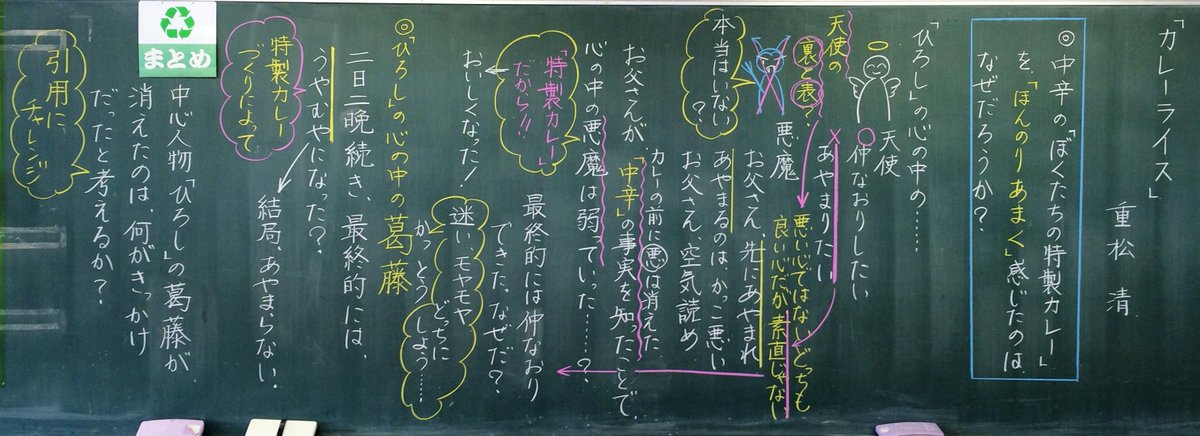 「カレーライス」
重松 清
◎中辛の「ぼくたちの特製カレー」
を、「ほんのりあまく」感じたのは
なぜだろうか?
「ひろし」の心の中の……
天使
仲なおりしたい
あやまりたい
天使の
裏と表?
悪い心ではない。どっちも
良い心だが素直じゃない
悪魔
お父さん、先にあやまれ
あやまるのは、かっこ悪い
お父さん、空気読め
本当はいない?
カレーの前に悪は消えた
「中辛」の事実を知ったことで
お父さんが、
心の中の悪魔は弱っていった……?
最終的には仲なおり
できた。なぜだ?
「特製カレー」
だから!!
おいしくなった!
迷い、モヤモヤ
かっとう どっちに
しよう……
◎「ひろし」の心の中の葛藤
二日二晩続き、最終的には、
うやむやになった?
結局、あやまらない。
特製カレー
づくりによって
まとめ
中心人物「ひろし」の葛藤が
消えたのは、何がきっかけ
だったと考えるか?
引用に
チャレンジ